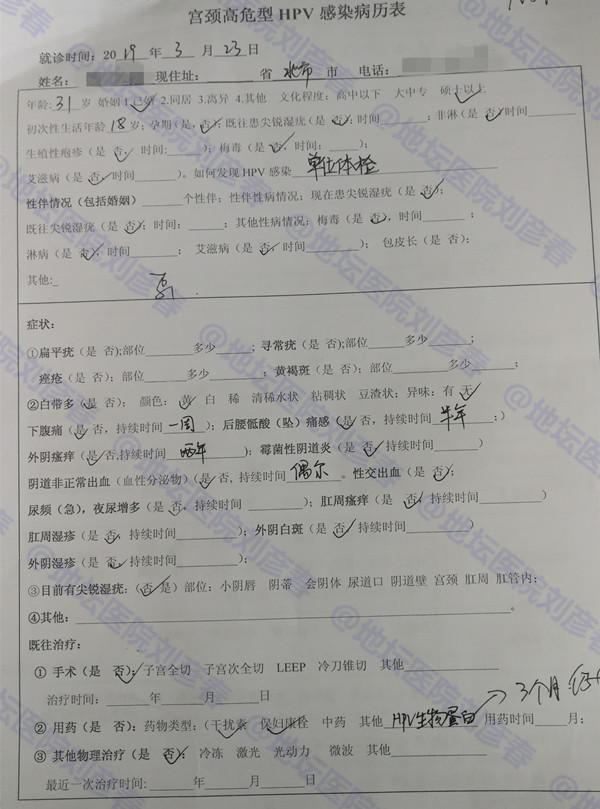 宫颈高危型 HPV 感染病历表
就诊时间: 2019 年 3 月 23 日
姓名: 现住址: 省 北京 市 电话:
年龄: 31 岁 婚姻 1.已婚 2.同居 3.离异 4.其他 文化程度: 高中以下 大中专 硕士以上
初次性生活年龄 18 岁; 孕期(是, 否); 既往患尖锐湿疣 (是 否); 时间 ; 非淋 (是 否) 时间
生殖性疱疹 (是 否 时间: ); 梅毒 (是 否, 时间: );
艾滋病 (是 否, 时间 )。如何发现 HPV 感染 单位体检
性伴情况(包括婚姻) 个性伴; 性伴性病情况: 现在患尖锐湿疣 (是 否);
既往尖锐湿疣 (是 否); 时间: ; 其他性病情况: 梅毒 (是 否), 时间 ;
淋病 (是 否), 时间 ; 艾滋病 (是 否, 时间 ); 包皮长 (是 否);
其他:
症状:
①扁平疣 (是 否);部位 多少 ; 寻常疣 (是 否);部位 多少 ;
痤疮 (是 否); 部位 多少 ; 黄褐斑 (是 否); 部位 多少 ;
②白带多 (是 否); 颜色: 黄 白 稀 清稀水状 粘稠状 豆渣状; 异味: 有 无
下腹痛 (是 否, 持续时间 一周 ); 后腰骶酸(坠)痛感 (是 否, 持续时间 半年 ;)
外阴瘙痒 (是 否,持续时间 两年 ); 霉菌性阴道炎 (是 否, 持续时间 )
阴道非正常出血 (血性分泌物) (是 否, 持续时间 偶尔 。性交出血 (是 否);
尿频(急), 夜尿增多 (是 否, 持续时间 ); 肛周瘙痒 (是 否, 持续时间 )
肛周湿疹 (是 否, 持续时间 ); 外阴白斑 (是 否, 持续时间 )
外阴湿疹 (是 否, 持续时间 );
③目前有尖锐湿疣: (否 是) 部位: 小阴唇 阴蒂 会阴体 尿道口 阴道壁 宫颈 肛周 肛管内;
④其他: 。
既往治疗:
① 手术 (是 否): 子宫全切 子宫次全切 LEEP 冷刀锥切 其他
治疗时间: 年 月 日
② 用药 (是 否): 药物类型: (干扰素 保妇康栓 中药 其他 HPV生物蛋白 用药时间 月;
3个月
③ 其他物理治疗 (是 否): 冷冻 激光 光动力 微波 其他
最近一次治疗时间: 年 月 日
@地坛医院刘彦春